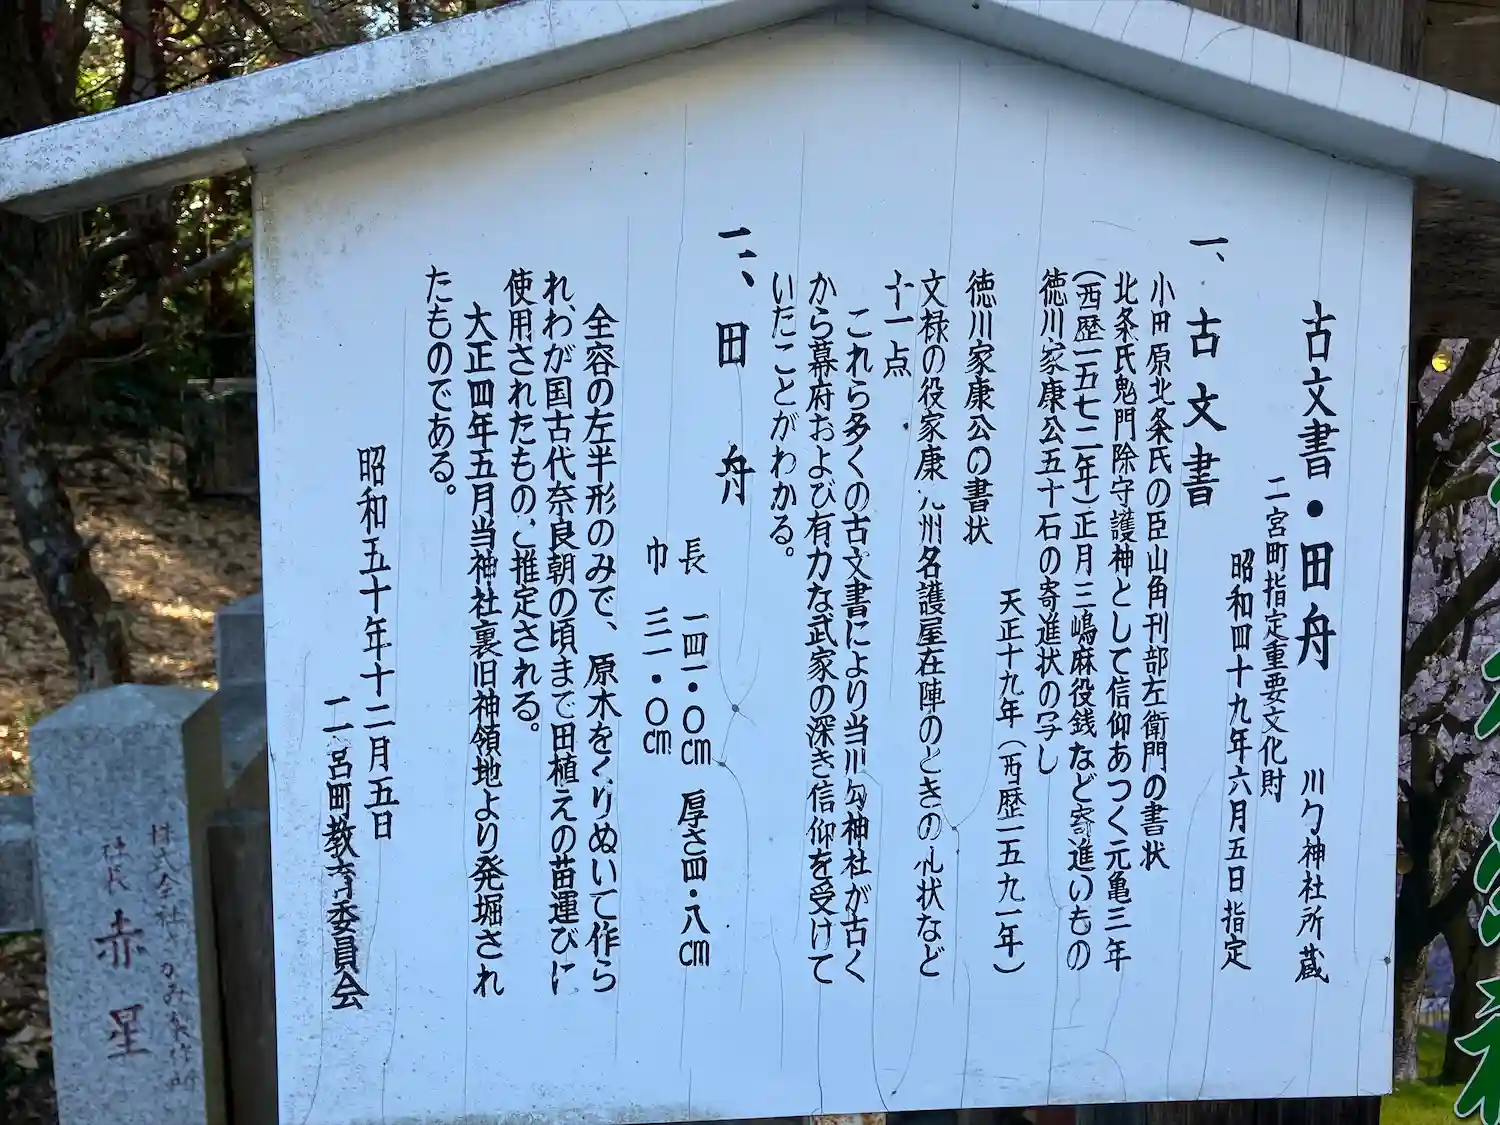 古文書・田舟　川勾神社所蔵
二宮町指定重要文化財
昭和四十九年六月五日指定
一、古文書
小田原北条氏の臣山角刊部左衛門の書状
北条氏鬼門除守護神として信仰あつく元亀三年
(西歴一五七二年)正月三嶋麻役銭など寄進いもの
徳川家康公五十石の寄進状の写し
天正十九年(西歴一五九一年)
徳川家康公の書状
文禄の役家康九州名護屋在陣のときの礼状など
十一点
これら多くの古文書により当川勾神社が古く
から幕府および有力な武家の深き信仰を受けて
いたことがわかる。
二、田舟
長 一四一・〇㎝ 厚さ四・八㎝
巾 三一・〇㎝
全容の左半形のみで、原木をくりぬいて作ら
れ、わが国古代奈良朝の頃まで田植えの苗運びに
使用されたものと推定される。
大正四年五月当神社裏旧神領地より発堀され
たものである。
昭和五十年十二月五日
二宮町教育委員会
株式会社
社長 赤星